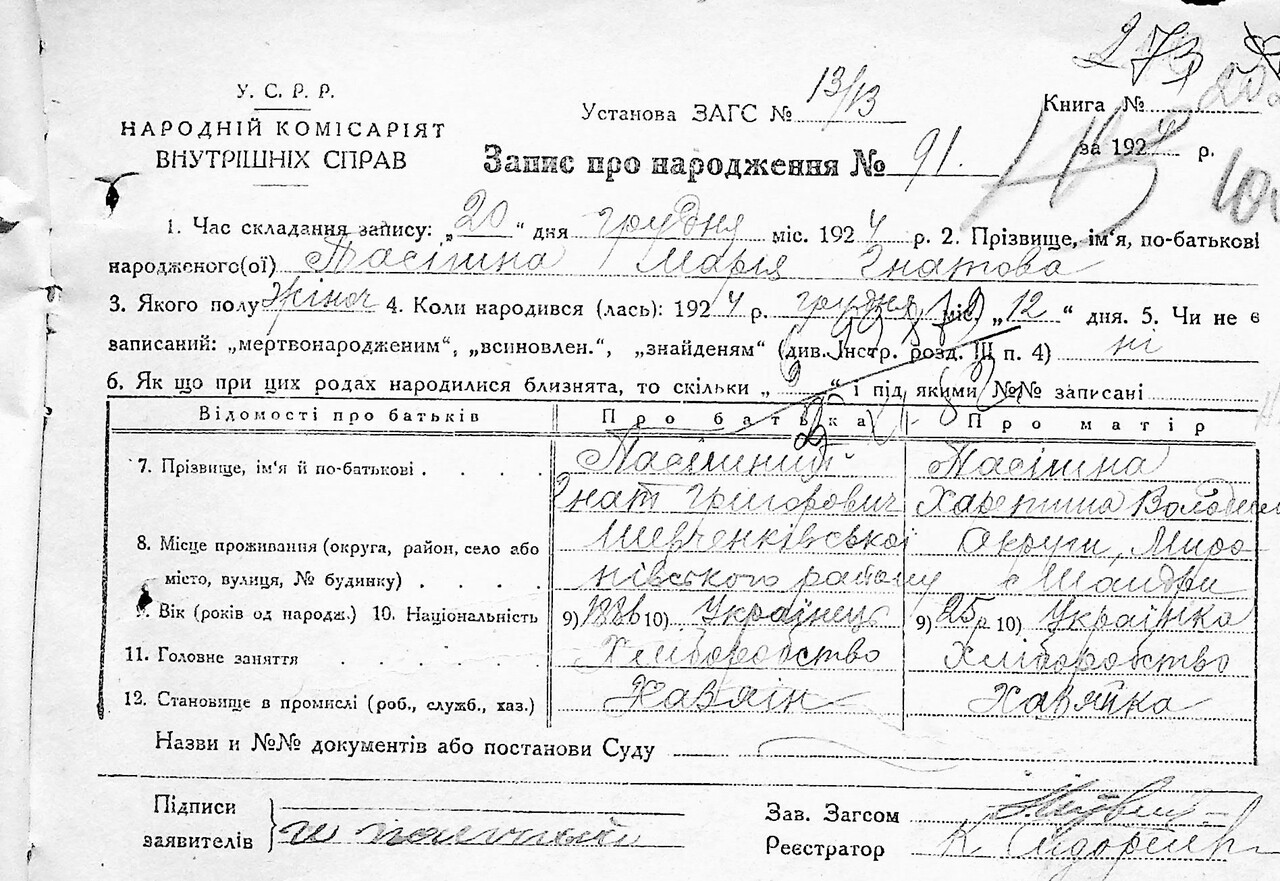 273
У. С. Р. Р.
НАРОДНІЙ КОМІСАРІЯТ
ВНУТРІШНІХ СПРАВ
Установа ЗАГС № 13/13
Книга №
за 1924 р.
Запис про народження № 91.
1. Час складання запису: „20“ дня грудня міс. 1924 р. 2. Прізвище, ім'я, по-батькові
народженого(ої) Пасічина Марія Гнатова
3. Якого полу жіноч 4. Коли народився (лась): 1924 р. грудня міс. „12“ дня. 5. Чи не є
записаний: „мертвонародженим“, „всиновлен.“, „знайденям“ (див. Інстр. розд. III п. 4) ні
6. Як що при цих родах народилися близнята, то скільки „ “ і під якими №№ записані
Відомості про батьків Про батька Про матір
7. Прізвище, ім'я й по-батькові . . . . Пасічний Пасічина
Гнат Григорович
8. Місце проживання (округа, район, село або Шевченківської Округи, Миро-
місто, вулиця, № будинку) . . . . нівського району с Шандри
9. Вік (років од народж.) 10. Національність 9) 1886 10) Українець 9) 25р 10) Українка
11. Головне заняття . . . . . Хліборобство Хліборобство
12. Становище в промислі (роб., служб., хаз.) Хазяїн Хазяйка
Назви и №№ документів або постанови Суду
Підписи
заявителів
Зав. Загсом
Реєстратор